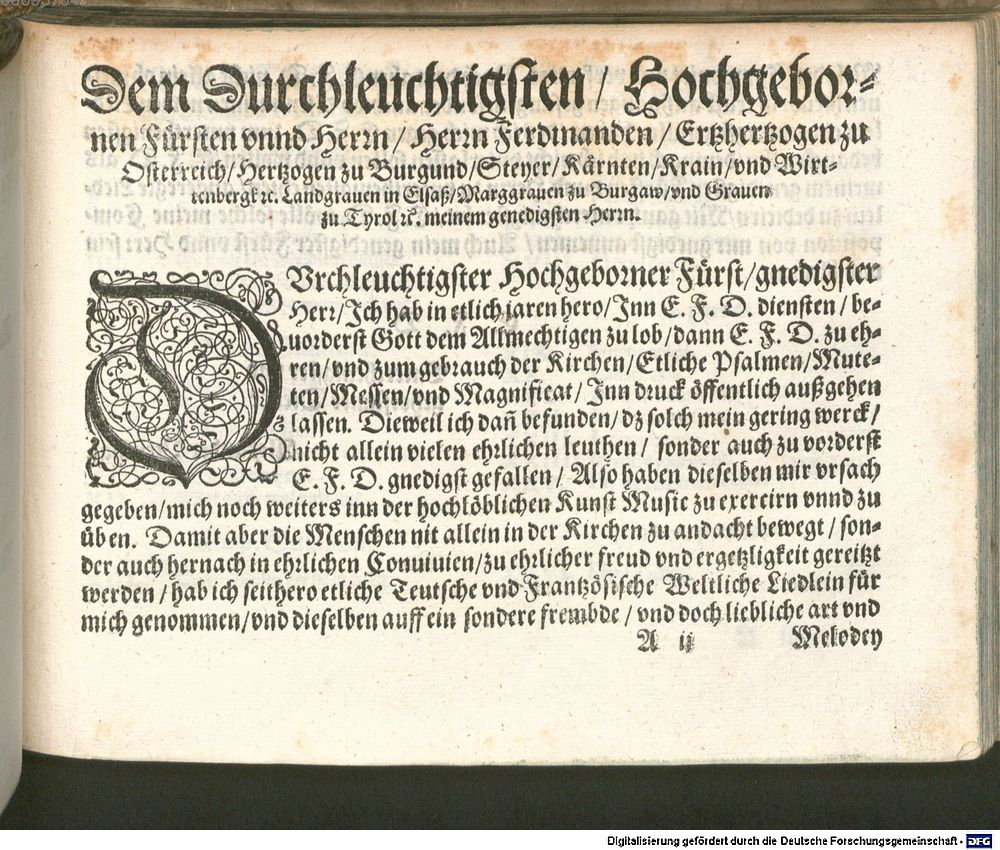 Dem Durchleuchtigsten / Hochgebor-
nen Fürsten vnnd Herrn / Herrn Ferdinanden / Ertzhertzogen zu
Osterreich / Hertzogen zu Burgund / Steyer / Kärnten / Krain / vnd Wirt-
tenbergk ꝛc. Landgrauen in Elsaß / Marggrauen zu Burgaw / vnd Grauen
zu Tyrol ꝛc. meinem genedigsten Herrn.
DVrchleuchtigster Hochgeborner Fürst / gnedigster
Herr / Ich hab in etlich jaren hero / Inn E. F. D. diensten / be-
uorderst Gott dem Allmechtigen zu lob / dann E. F. D. zu eh-
ren / vnd zum gebrauch der Kirchen / Etliche Psalmen / Mute-
ten / Messen / vnd Magnificat / Inn druck öffentlich außgehen
lassen. Dieweil ich dañ befunden / dz solch mein gering werck /
nicht allein vielen ehrlichen leuthen / sonder auch zu vorderst
E. F. D. gnedigst gefallen / Also haben dieselben mir vrsach
gegeben / mich noch weiters inn der hochlöblichen Kunst Music zu exercirn vnnd zu
üben. Damit aber die Menschen nit allein in der Kirchen zu andacht bewegt / son-
der auch hernach in ehrlichen Conuiuien / zu ehrlicher freud vnd ergetzligkeit gereitzt
werden / hab ich seithero etliche Teutsche vnd Frantzösische Weltliche Liedlein für
mich genommen / vnd dieselben auff ein sondere frembde / vnd doch liebliche art vnd
A ij Melodey
Digitalisierung gefördert durch die Deutsche Forschungsgemeinschaft - DFG